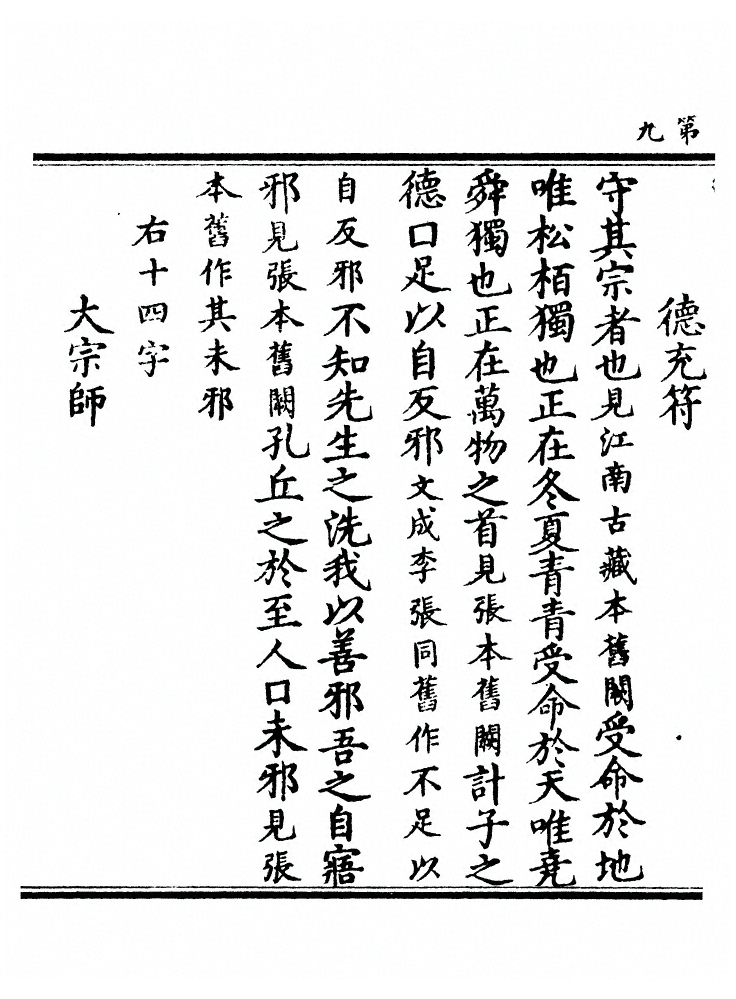 第九
德充符
守其宗者也見江南古藏本舊闕受命於地
唯松栢獨也正在冬夏青青受命於天唯堯
舜獨也正在萬物之首見張本舊闕計子之
德口足以自反邪文成李張同舊作不足以
自反邪不知先生之洗我以善邪吾之自寤
邪見張本舊闕孔丘之於至人口未邪見張
本舊作其未邪
右十四字
大宗師